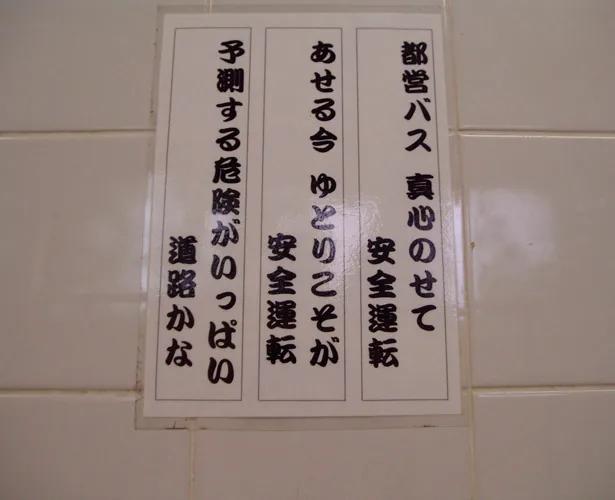 都営バス 真心のせて
安全運転
あせる今 ゆとりこそが
安全運転
予測する危険がいっぱい
道路かな